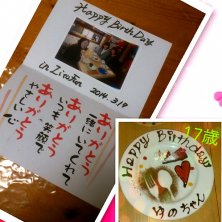 Happy BirthDay
2014.3.19
ありがとう
一緒にいてくれて
ありがとう
いつも笑顔で
ありがとう
やさしい心
17歳
Happy Birthday
ゆのちゃん